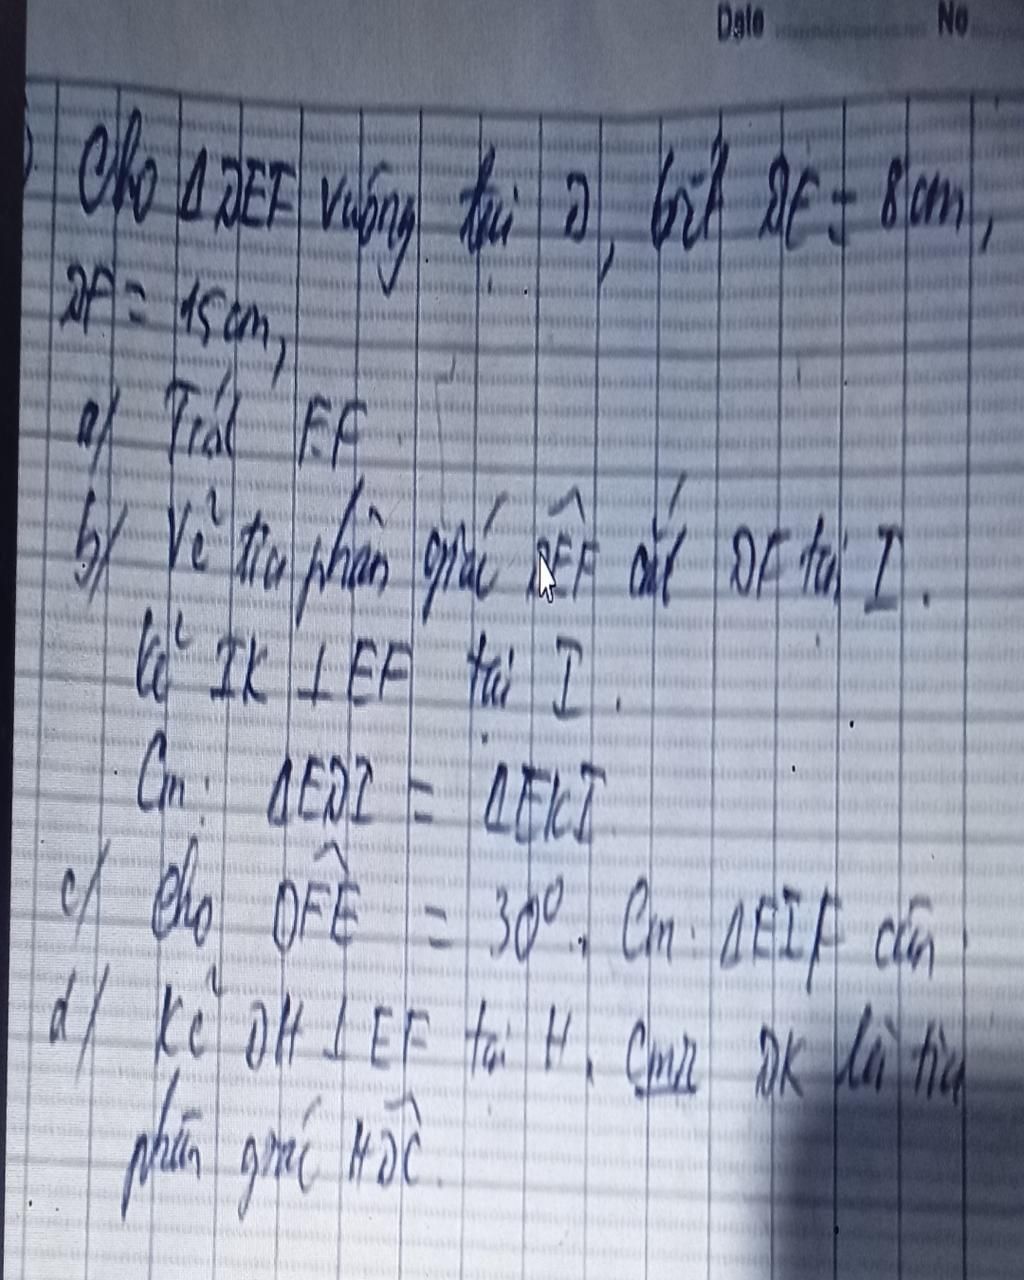 Date No
Cho Δ DEF vuông tại D, biết DE = 8cm,
DF = 15cm,
a/ Tính EF
b/ Vẽ tia phân giác DEF cắt DF tại I.
Kẻ IK ⊥ EF tại I.
Cm: ΔEDI = ΔEKI
c/ Cho DFE = 30⁰. Cm: ΔEIF cân
d/ Kẻ DH ⊥ EF tại H. Cmr DK là tia
phân giác HDC.